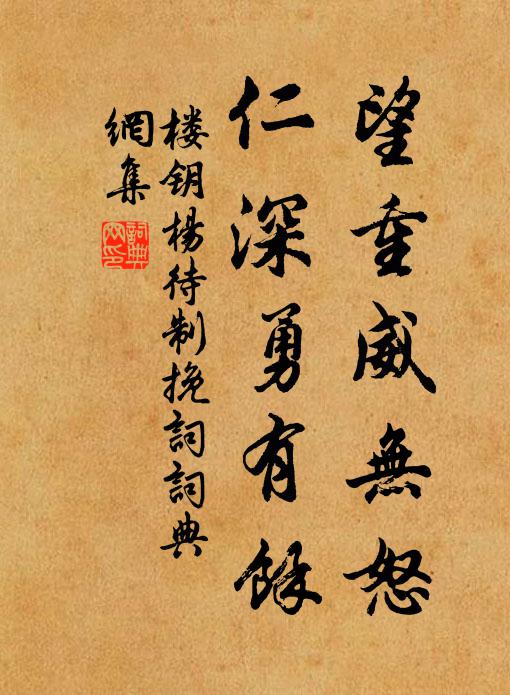 望重威無怒
仁深勇有餘
楼钥楊待制挽詞詞典
網集
詞典
网印